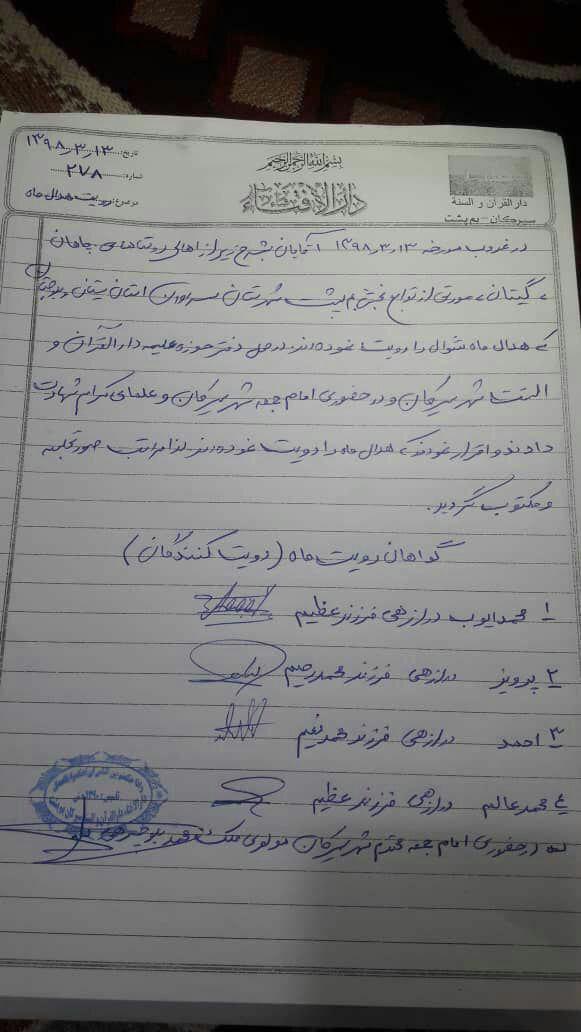 بسم الله الرحمن الرحیم
دار الإفتاء
دار القرآن و السنة
سیرکان - بم پشت
تاریخ: ۱۳۹۸/۳/۱۳
شماره: ۲۷۸
موضوع: رویت هلال ماه
در غروب مورخه ۱۳۹۸/۳/۱۳ آقایان بشرح زیر از اهالی روستاهای چاهان
، گیتان، مورتی از توابع بخش بم پشت شهرستان سراوان استان سیستان و بلوچستان
که هلال ماه شوال را رویت نموده‌اند در محل دفتر حوزه علمیه دار القرآن و
السنت شهر سیرکان و در حضوری امام جمعه شهر سیرکان و علمای کرام شهادت
دادند و اقرار نمودند که هلال ماه را رویت نموده‌اند لذا مراتب صورتجلسه
و مکتوب گردید.
گواهان رویت ماه (رویت کنندگان)
۱ محمد ایوب درازهی فرزند عظیم
۲ پرویز درازهی فرزند محمد رحیم
۳ احمد درازهی فرزند محمد نعیم
۴ محمد عالم درازهی فرزند عظیم
در حضوری امام جمعه محترم شهر سیرکان مولوی ملک محمد بلوچزهی